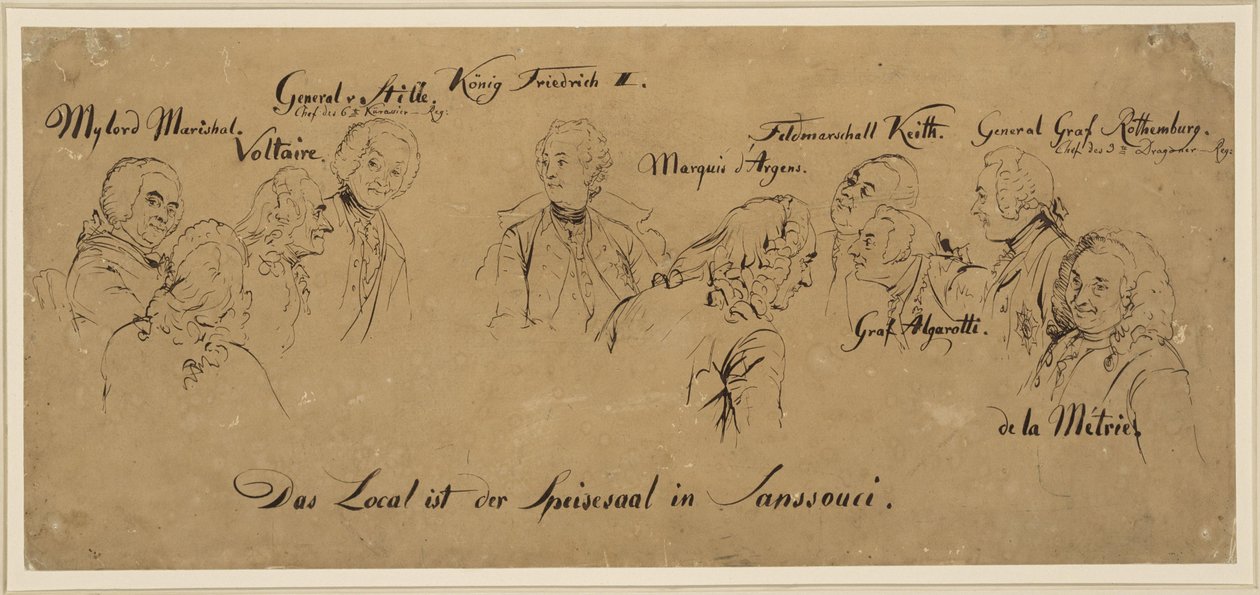 Mylord Marishal.
Voltaire.
General v. Stille.
Chef des 6ten Kürassier-Reg:
König Friedrich II.
Marquis d'Argens.
Feldmarschall Keith.
General Graf Rothemburg.
Chef des 3ten Dragoner-Reg:
Graf Algarotti.
de la Métrie.
Das Local ist der Speisesaal in Sanssouci.